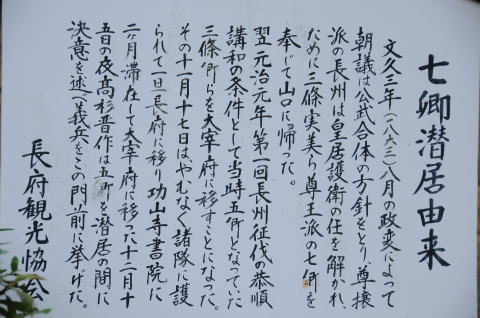 七卿潜居由来
文久三年(一八六三)八月の政変によって
朝議は公武合体の方針をとり、尊攘
派の長州は皇居護衛の任を解かれ、
ために三條実美ら尊王派の七卿を
奉じて山口に帰った。
翌元治元年第一回長州征伐の恭順
講和の条件として当時五卿となっていた
三條卿らを大宰府に移すことになった。
その十一月十七日はやむなく諸隊に護
られて一旦長府に移り功山寺書院に
二ヶ月滞在して大宰府に移った十二月十
五日の夜高杉晋作は五卿を潜居の間に
決意を述べ義兵をこの門前に挙げた。
長府観光協会